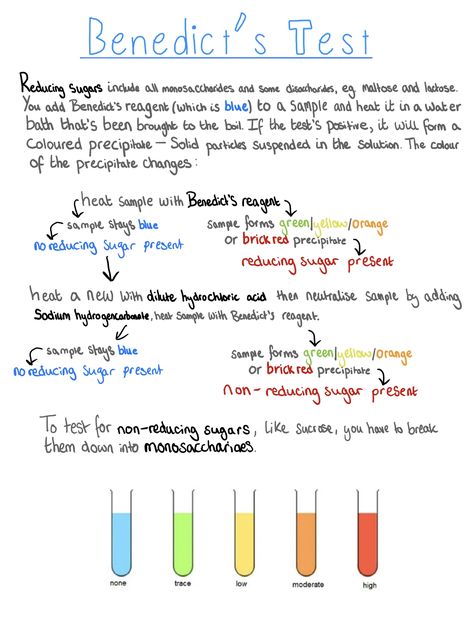 Benedict's Test
Reducing Sugars include all monosaccharides and some disaccharides, eg maltose and lactose.
You add Benedict's reagent (which is blue) to a sample and heat it in a water
bath that's been brought to the boil. If the test's positive, it will form a
coloured precipitate – Solid particles suspended in the solution. The colour
of the precipitate changes:
heat sample with Benedict's reagent
sample stays blue
no reducing sugar present
sample forms green/yellow/orange
or brick red precipitate
reducing sugar present
heat a new with dilute hydrochloric acid then neutralise sample by adding
Sodium hydrogencarbonate, heat sample with Benedict's reagent.
sample stays blue
no reducing sugar present
sample forms green/yellow/orange
or brick red precipitate
non-reducing sugar present
To test for non-reducing sugars, like sucrose, you have to break
them down into monosaccharides.
none trace low moderate high